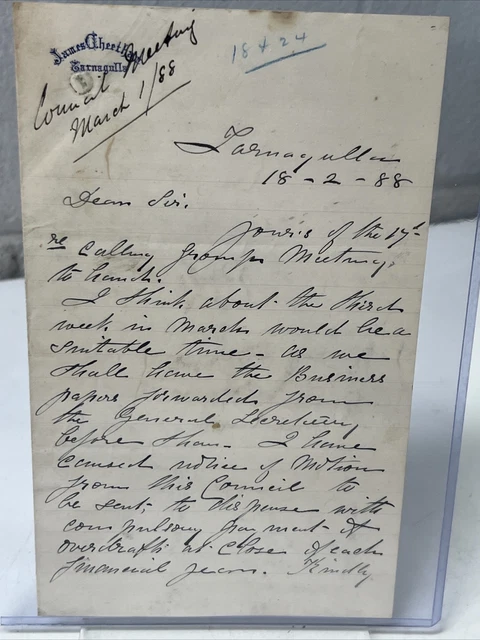 James Cheetham
Tarnagulla
Council Meeting
March 1/88
18 & 24
Tarnagulla
18-2-88
Dear Sir.
Yours of the 17th
re calling Group Meeting,
to hand.
I think about the third
week in March would be a
suitable time - as we
shall have the Business
papers forwarded from
the General Secretary
before than. I have
caused notice of Motion
from this Council to
be sent to dispense with
compulsory payment of
overdraft at close of each
financial year. Kindly